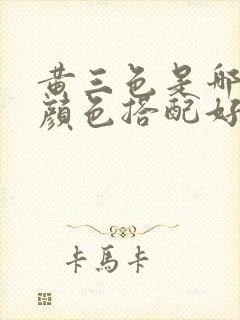 黄三色是哪
颜色搭配好
卡馬卡